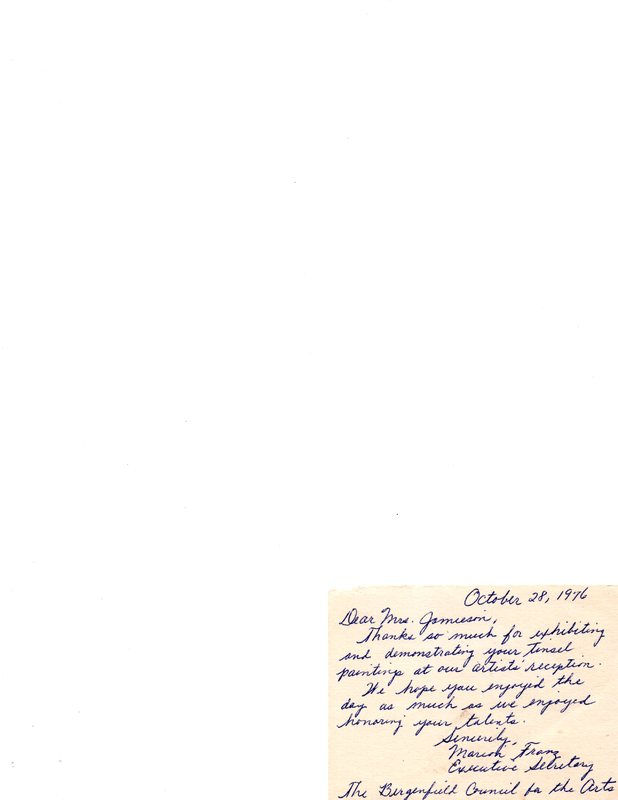 October 28, 1976
Dear Mrs. Jamieson,
Thanks so much for exhibiting
and demonstrating your Tinsel
paintings at our artists' reception.
We hope you enjoyed the
day as much as we enjoyed
honoring your talents.
Sincerely,
Marion Franz
Executive Secretary
The Bergenfield Council for the Arts